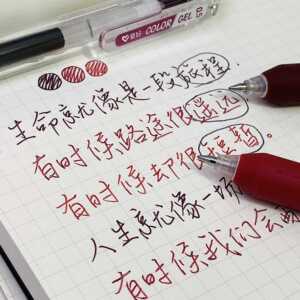 COLOR GEL 0.5
生命就像是一段旅程.
有时候路途很遥远
有时候却很短暂。
人生就像一场
有时候我们会